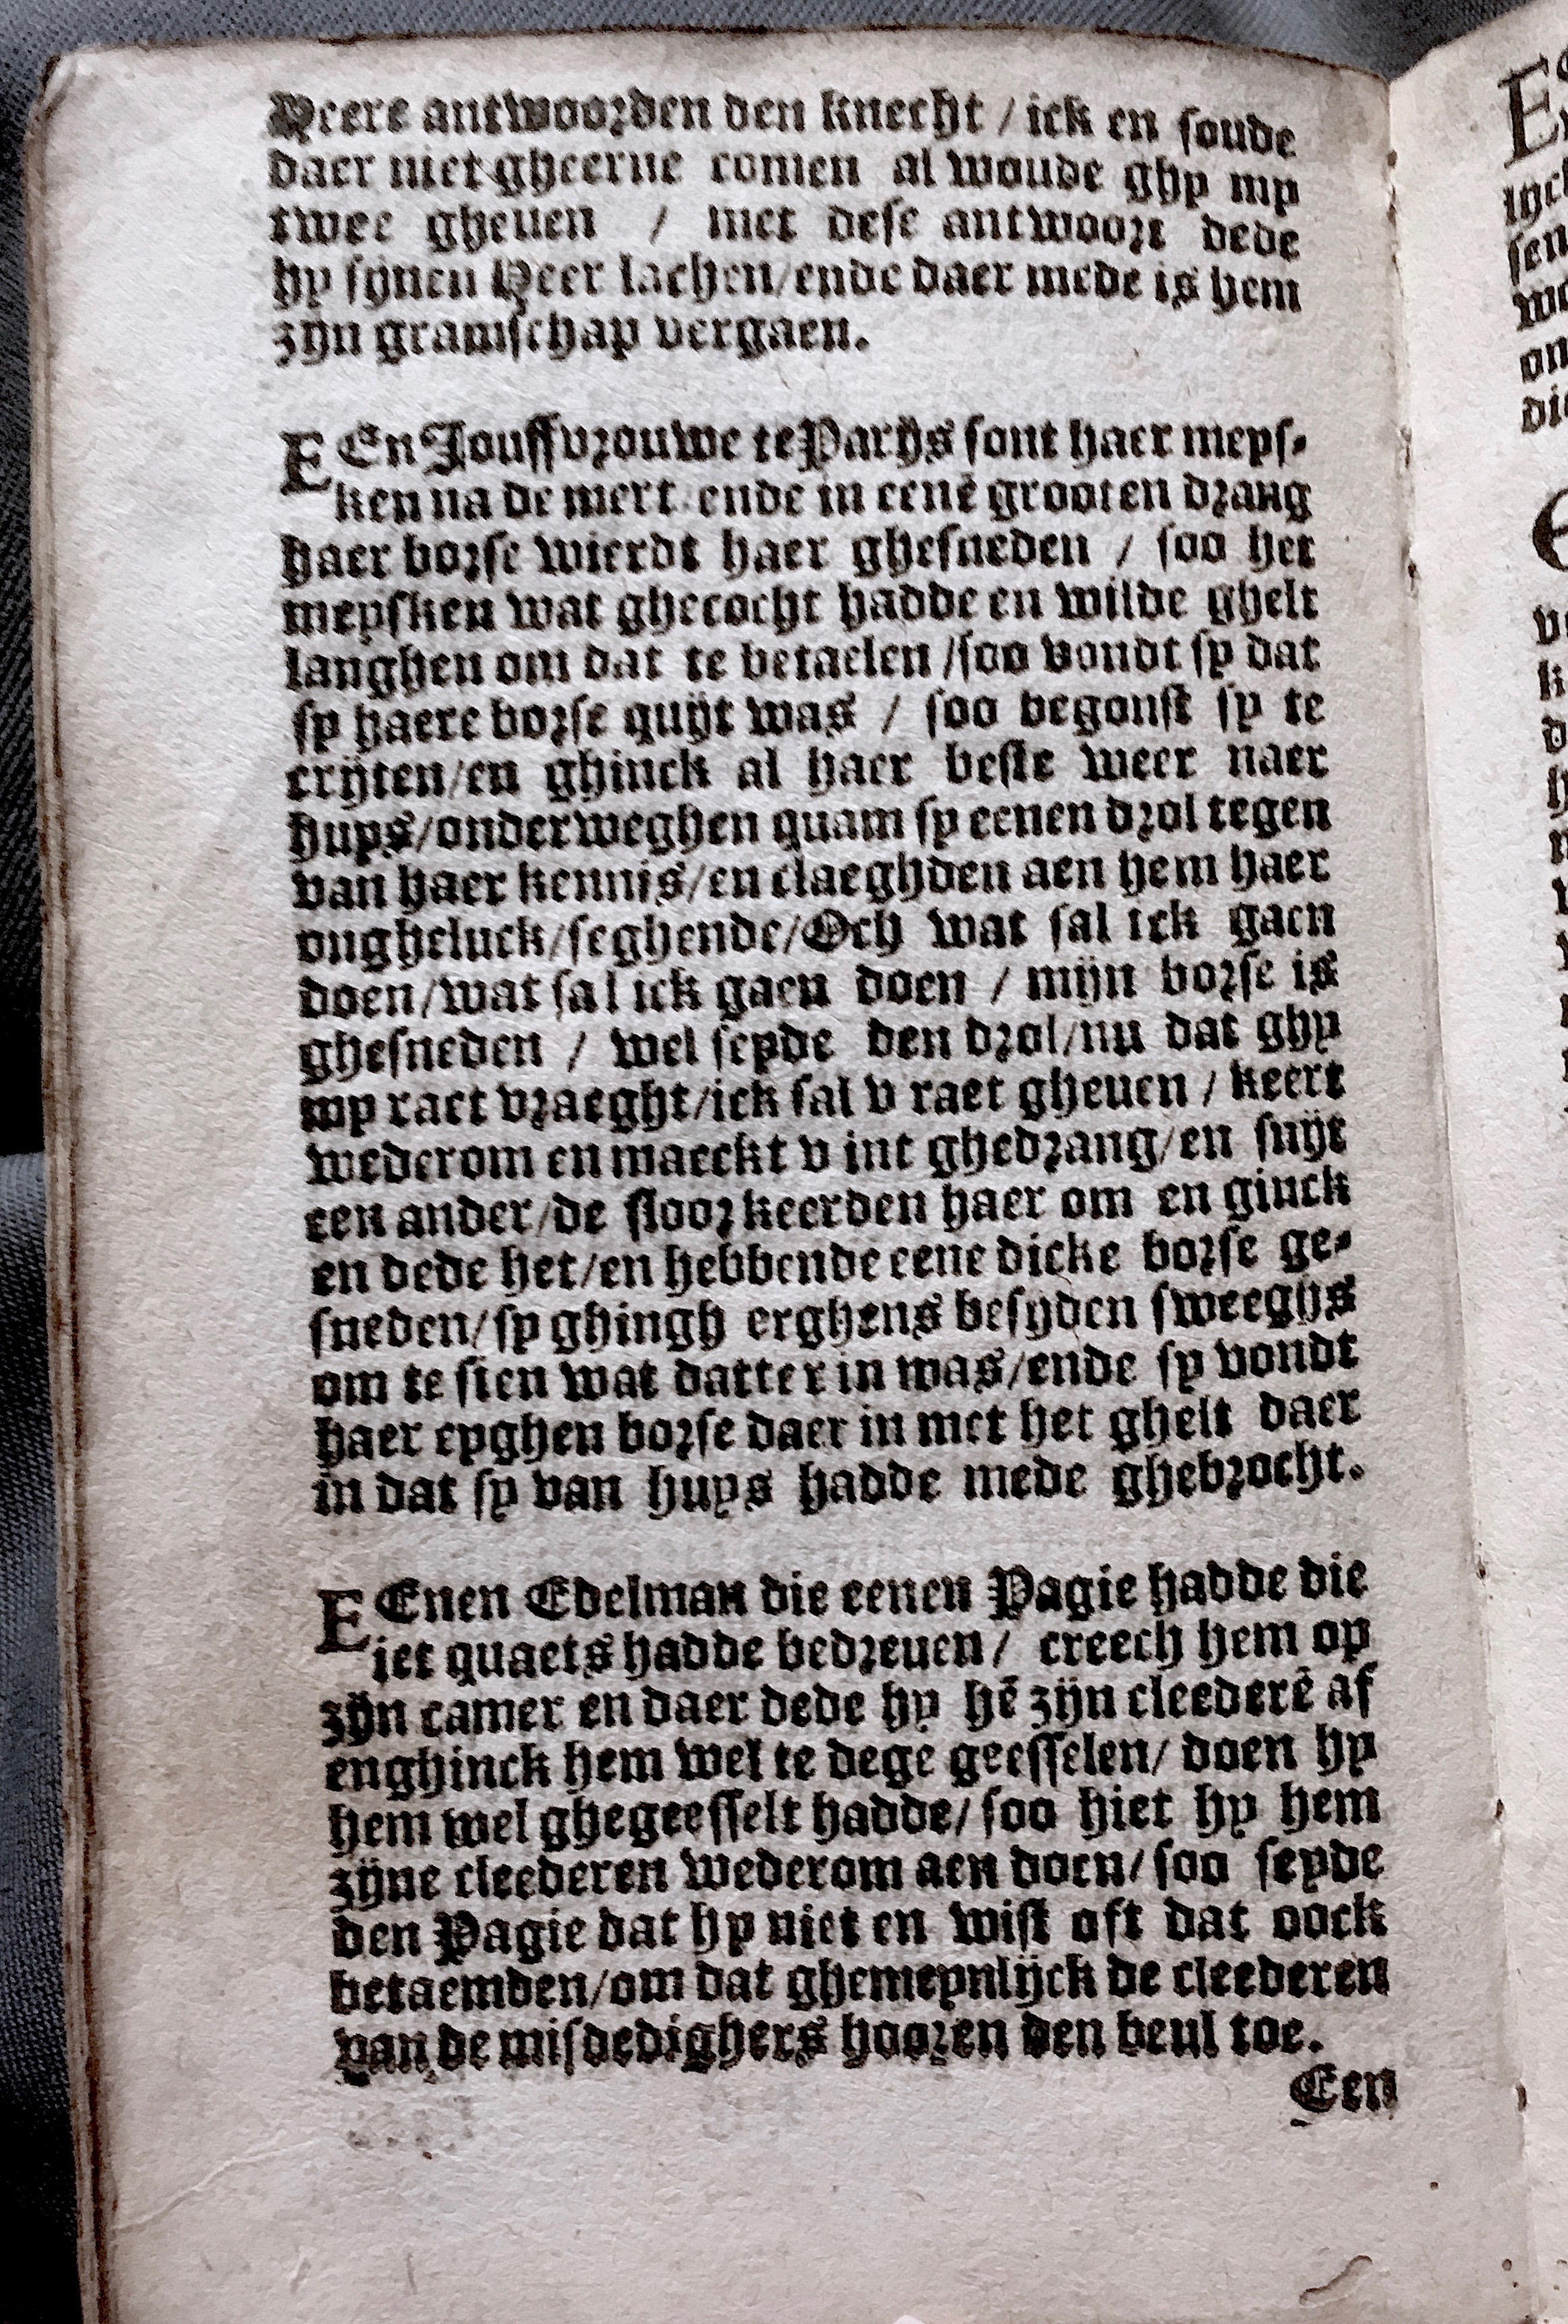 Heere antwoorden den knecht / ick en soude
daer niet gheerne comen al woude ghy my
twee gheuen / met dese antwoort dede
hy synen Heer lachen/ende daer mede is hem
zijn gramschap vergaen.
EEn Jouffvrouwe te Parijs sont haer meys-
ken na de mert ende in eenē grooten drang
haer borse wierdt haer ghesneden / soo het
meysken wat ghecocht hadde en wilde ghelt
langhen om dat te betaelen /soo vondt sy dat
sy haere borse quijt was / soo begonst sy te
crijten/en ghinck al haer beste weer naer
huys/onderweghen quam sy eenen drol tegen
van haer kennis/en claeghden aen hem haer
ongheluck/seghende/Och wat sal ick gaen
doen/wat sal ick gaen doen / mijn borse is
ghesneden / wel seyde den drol/nu dat ghy
my raet vraeght/ick sal v raet gheuen / keert
wederom en maeckt v int ghedrang/en snijt
een ander/de sloor keerden haer om en ginck
en dede het/en hebbende eene dicke borse ge-
sneden/sy ghingh erghens besyden sweeghs
om te sien wat datter in was/ende sy vondt
haer eyghen borse daer in met het ghelt daer
in dat sy van huys hadde mede ghebrocht.
EEnen Edelman die eenen Pagie hadde die
iet quaets hadde bedreuen/ creech hem op
zijn camer en daer dede hy hē zijn cleederē af
enghinck hem wel te dege geesselen/ doen hy
hem wel ghegeesselt hadde/ soo hiet hy hem
zijne cleederen wederom aen doen/ soo seyde
den Pagie dat hy niet en wist oft dat oock
betaemden/om dat ghemeynlijck de cleederen
van de misdedighers hooren den beul toe.
Een